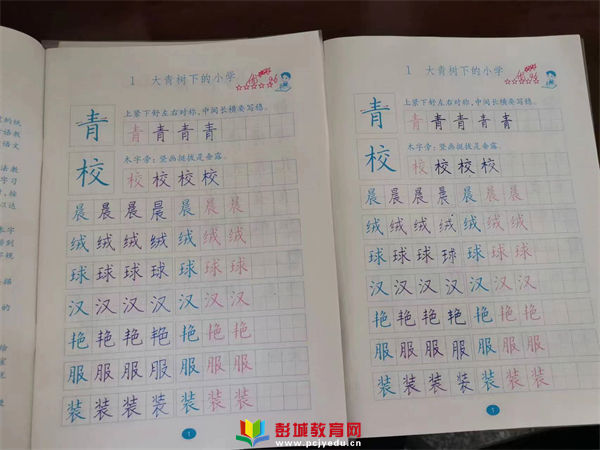 1 大青树下的小学
96
青
上紧下舒左右对称,中间长横要写稳。
青青青青
校
木字旁:竖画挺拔是垂露。
校校校校
晨晨晨晨晨晨晨
绒绒绒绒绒绒绒
球球球球球球球
汉汉汉汉汉汉汉
艳艳艳艳艳艳艳
服服服服服服服
装装装装装装装
1
1 大青树下的小学
96
青
上紧下舒左右对称,中间长横要写稳。
青青青青青
校
木字旁:竖画挺拔是垂露。
校校校校
晨晨晨晨晨晨晨
绒绒绒绒绒绒绒
球球球球球球球
汉汉汉汉汉汉汉
艳艳艳艳艳艳艳
服服服服服服服
装装装装装装装
1
彭城教育网
www.pcjyedu.cn